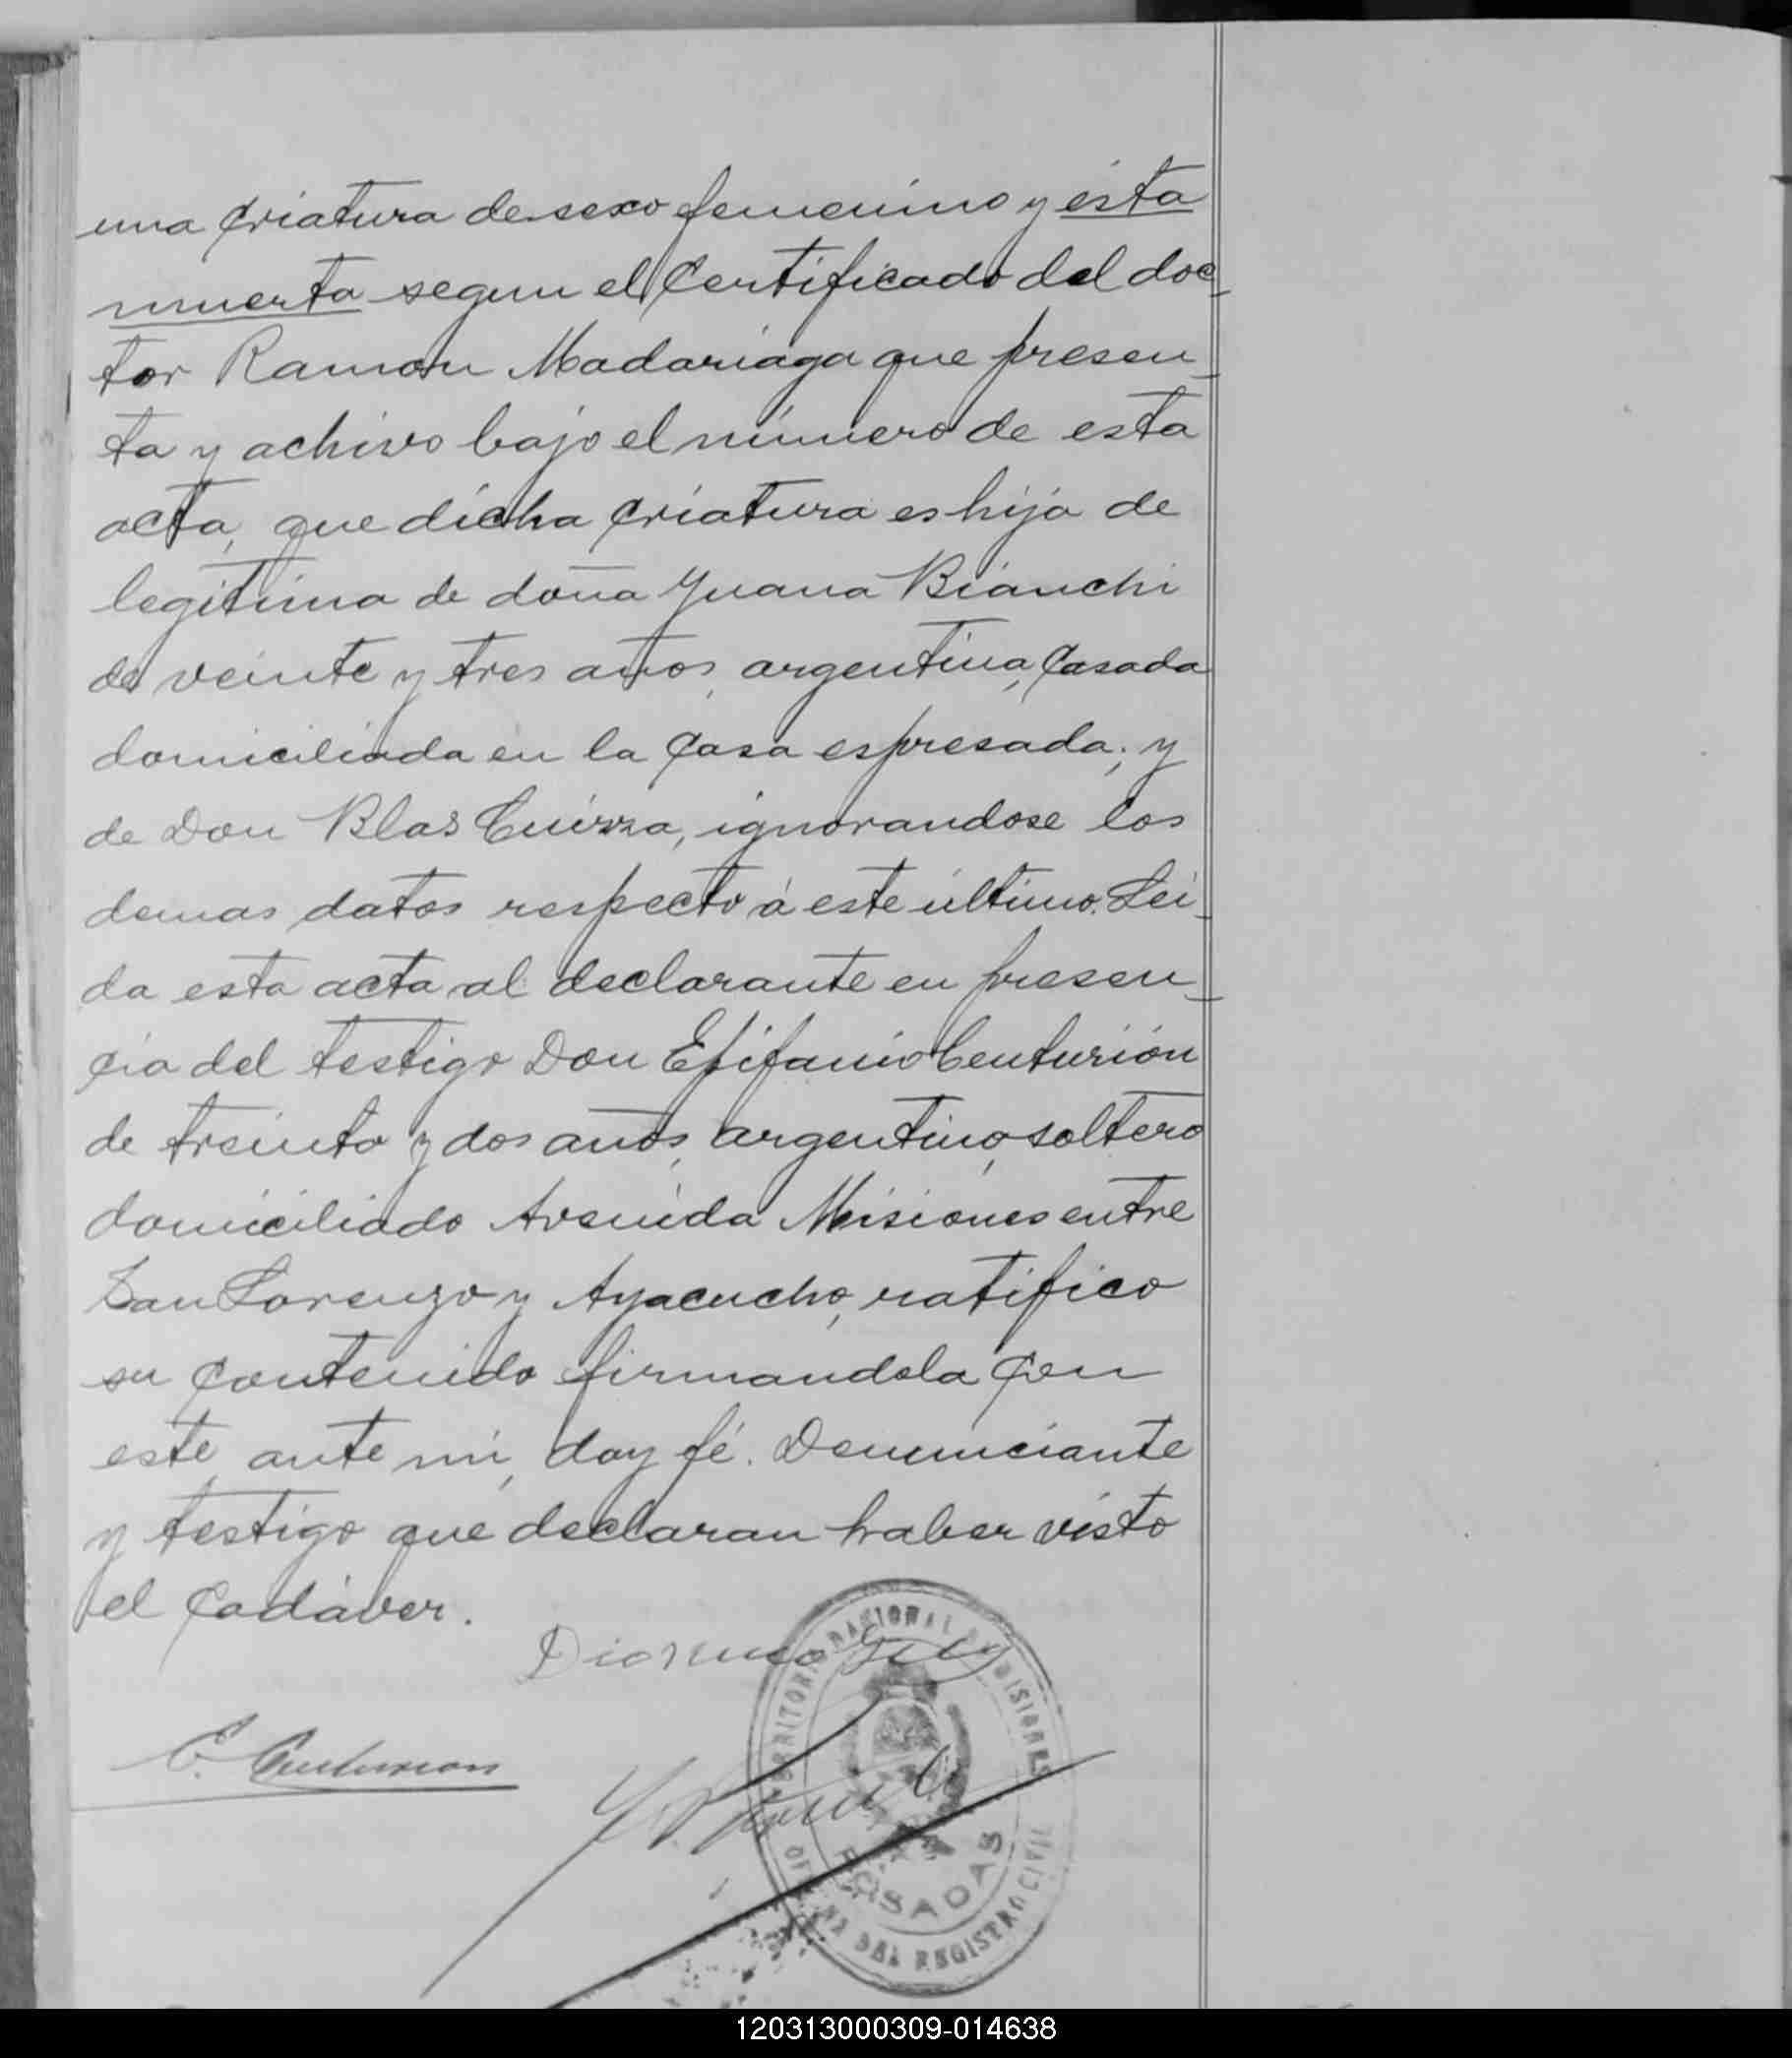 una criatura de sexo femenino y ésta
muerta segun el certificado del doc-
tor Ramon Madariaga que presen-
ta y achivo bajo el número de esta
acta, que dicha criatura es hija de
legítima de doña Juana Bianchi
de veinte y tres años, argentina, casada
domiciliada en la casa espresada; y
de Don Blas ignorandose los
demas datos respecto á este último. Lei-
da esta acta al declarante en presen-
cia del testigo Don Epifanio Centurión
de treinta y dos años, argentino, soltero
domiciliado Avenida Misiones entre
San Lorenzo y Ayacucho, ratifico
su contenido firmandola con
este, ante mi, doy fé. Denunciante
y testigo que declaran haber visto
el cadáver.
E. Centurion
TERRITORIO NACIONAL DE MISIONES
POSADAS
OFICINA DEL REGISTRO CIVIL
120313000309-014638